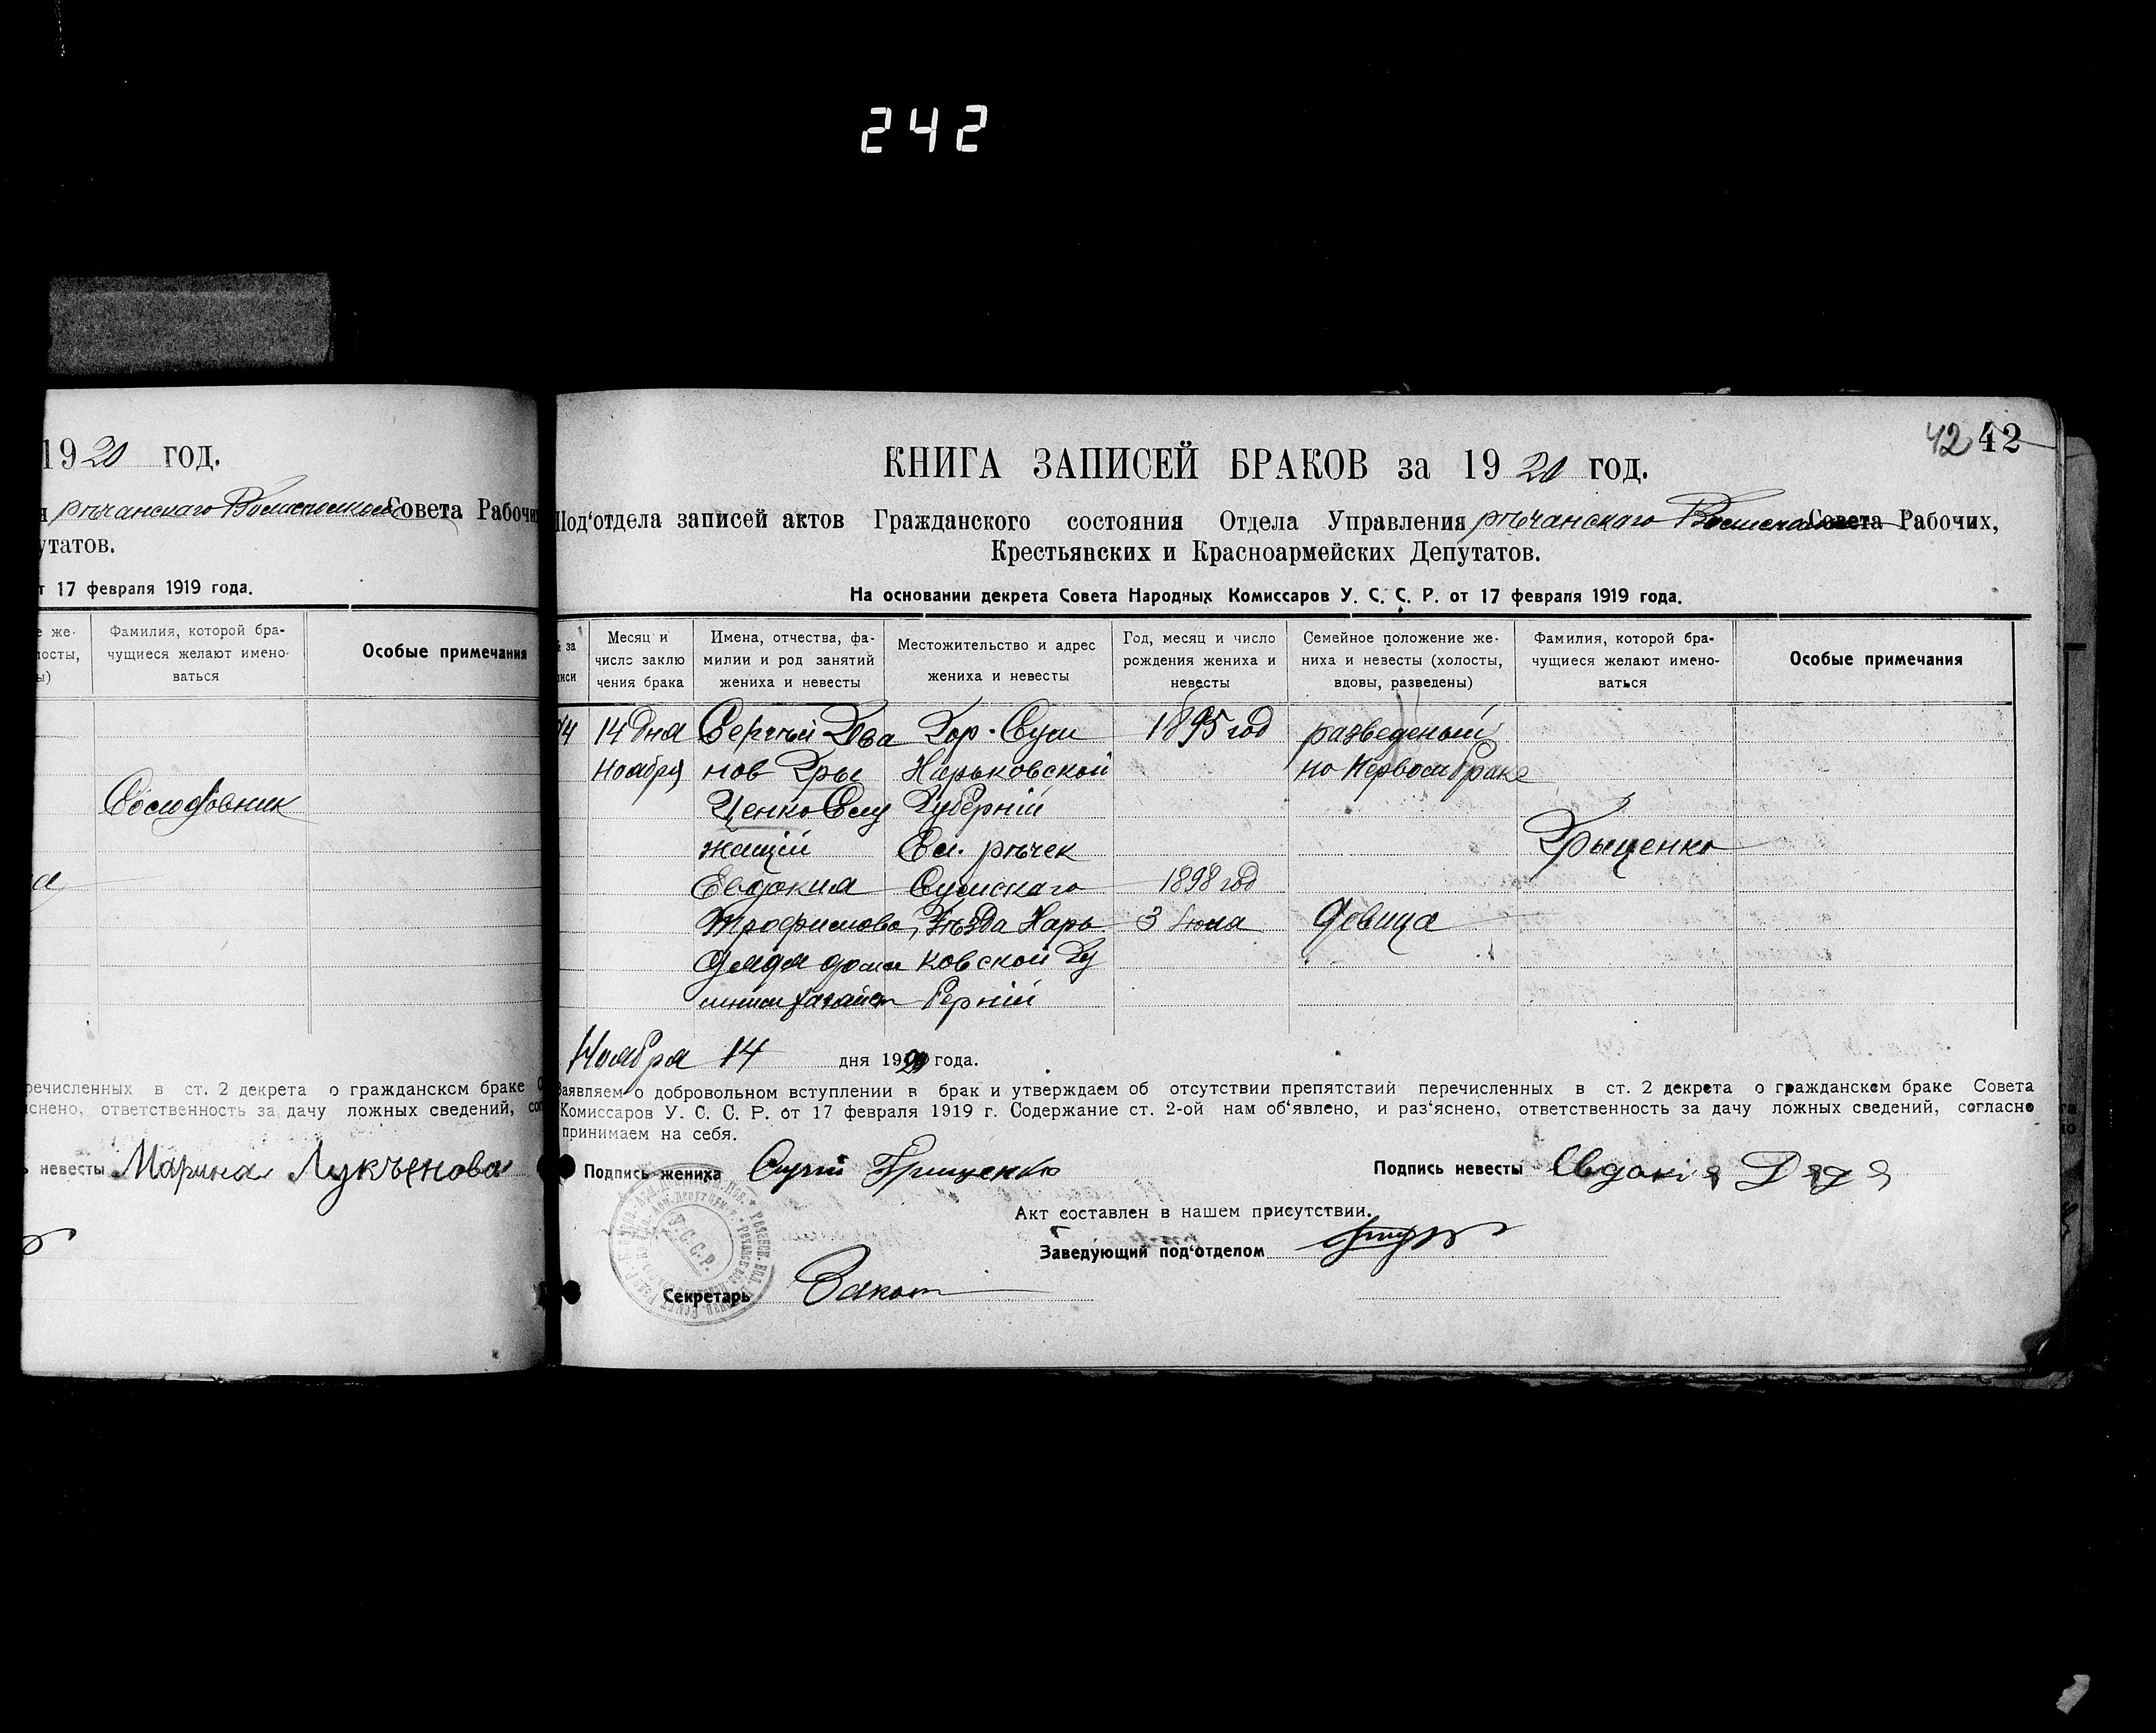 242
1920 год.
рѣчанскаго Волисполкома Совета Рабочи
утатов.
т 17 февраля 1919 года.
Фамилия, которой бра-
чущиеся желают имено-
ваться
Особые примечания
невесты Марина Лукъенова
речисленных в ст. 2 декрета о гражданскем браке
снено, ответственность за дачу ложных сведений,
42 42
КНИГА ЗАПИСЕЙ БРАКОВ за 1920 год.
Под'отдела записей актов Гражданского состояния Отдела Управления рѣчанскаго Совета Рабочих,
Крестьянских и Красноармейских Депутатов.
На основании декрета Совета Народных Комиссаров У. С. С. Р. от 17 февраля 1919 года.
Месяц и
число заклю
чения брака
Имена, отчества, фа-
милии и род занятий
жениха и невесты
Местожительство и адрес
жениха и невесты
Год, месяц и число
рождения жениха и
невесты
Семейное положение же-
ниха и невесты (холосты,
вдовы, разведены)
Фамилия, которой бра-
чущиеся желают имено-
ваться
Особые примечания
14 дня
ноября
Сергѣй Ива
нов Гры
ценко Слу
жащій
Евдокия
Трофимова
Дядя
Гор. Сум
Харьковской
Губерніи
Сл. рѣчек
Сумскаго
Уѣзда Харь
ковской Гу
берніи
1895 год
1898 год
3 Июня
разведеный
но Первом браке
Девица
Грыценко
Ноября 14 дня 1920 года.
Заявляем о добровольном вступлении в брак и утверждаем об отсутствии препятствий перечисленных в ст. 2 декрета о гражданскем браке Совета
Комиссаров У. С. С. Р. от 17 февраля 1919 г. Содержание ст. 2-ой нам об'явлено, и раз'яснено, ответственность за дачу ложных сведений, согласно
принимаем на себя.
Подпись жениха Сергій Грищенко
Подпись невесты Евдокія Дядя
Акт составлен в нашем присутствии.
Заведующий под'отделом
Секретарь
У. С. С. Р.